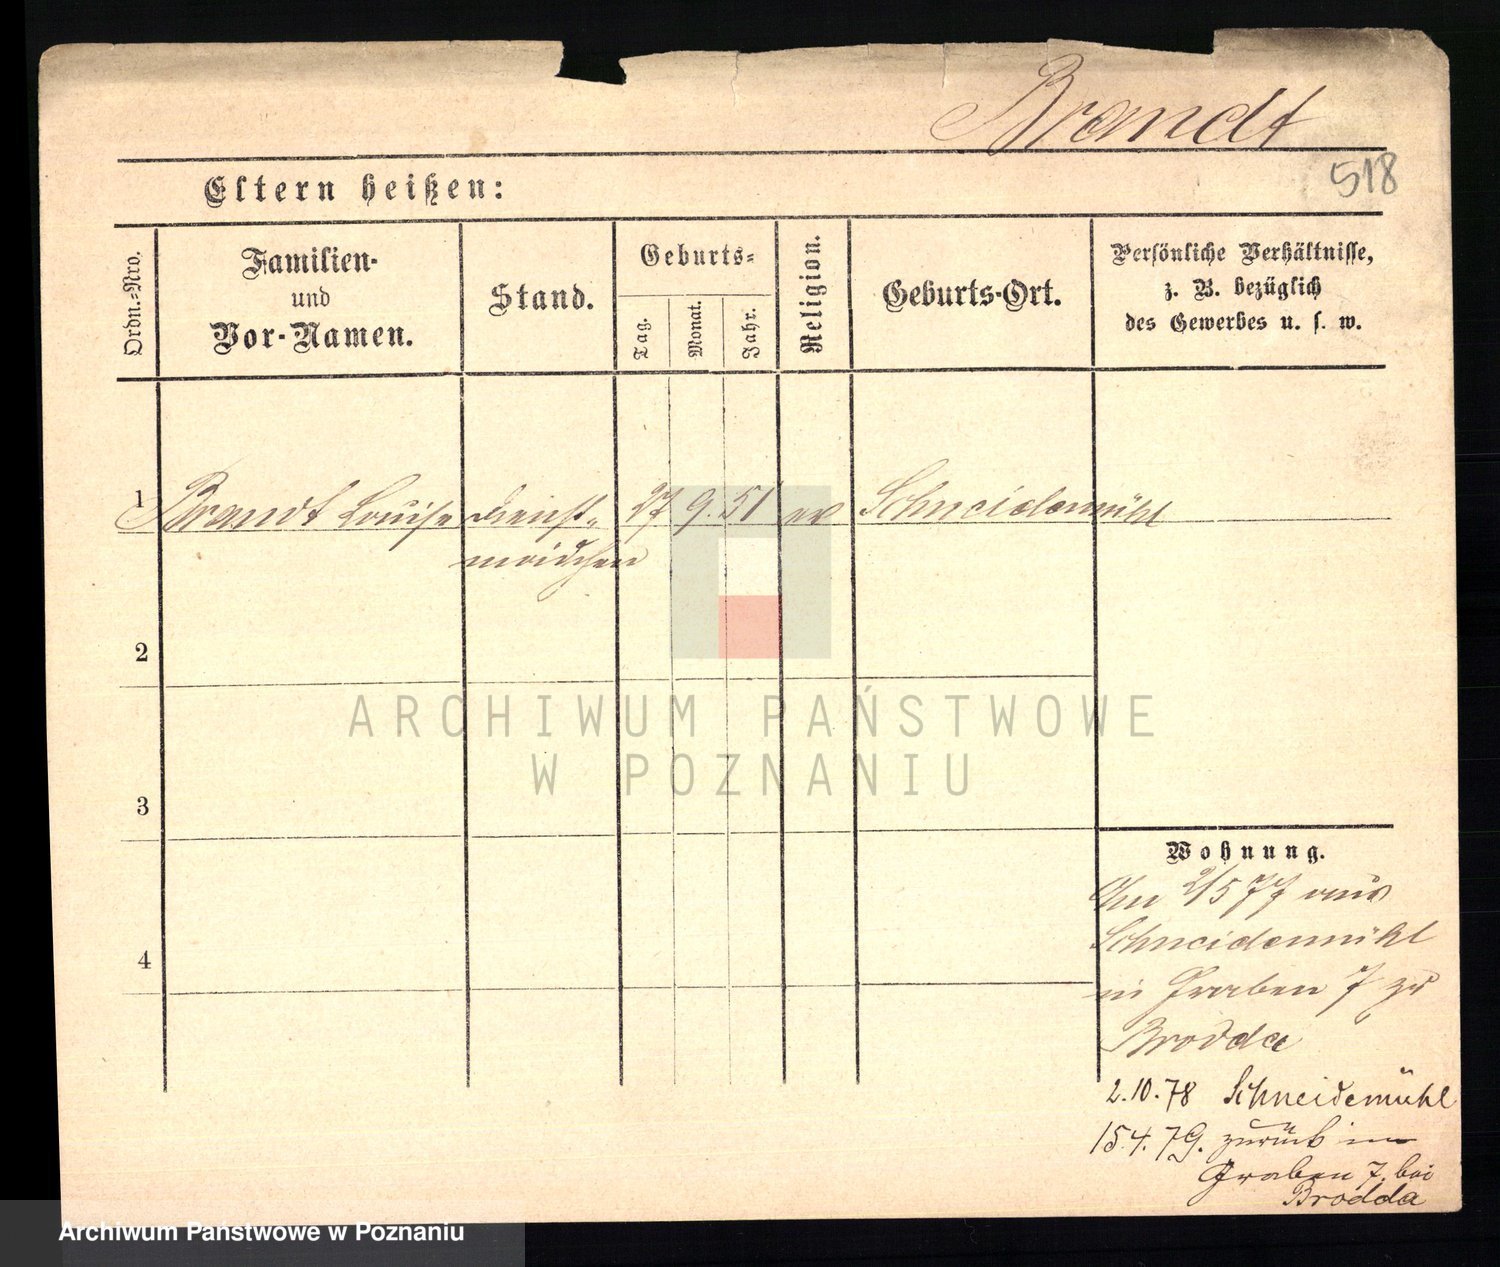 Brandt
518
Eltern heißen:
Ordn.-Nro.
Familien-
und
Vor-Namen.
Stand.
Geburts-
Tag.
Monat.
Jahr.
Religion.
Geburts-Ort.
Persönliche Verhältnisse,
z. B. bezüglich
des Gewerbes u. s. w.
1 Brandt Louise Dienst- 27 9. 51 ev Schneidemühl
mädchen
2
3
4
ARCHIWUM PAŃSTWOWE
W POZNANIU
Wohnung.
2/5 77 aus
Schneidemühl
in Graben 7 zu
Brodda
2.10.78 Schneidemühl
15.4.79. zurück in
Graben 7. bei
Brodda
Archiwum Państwowe w Poznaniu